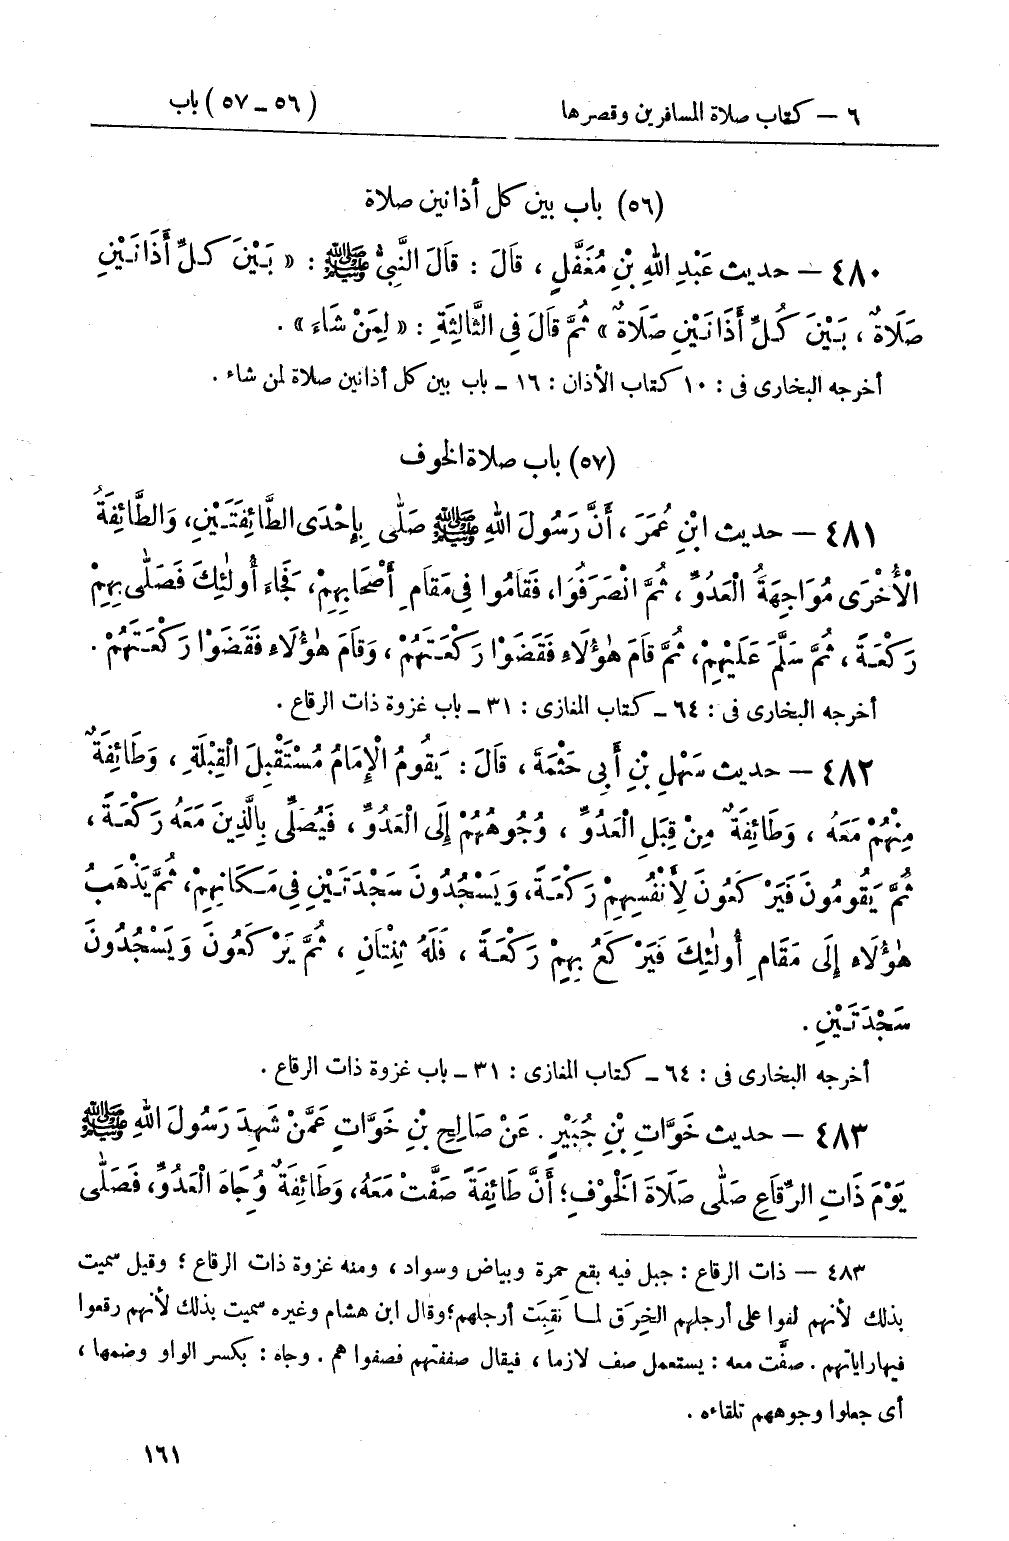 ٦ — كتاب صلاة المسافرين وقصرها (٥٦ ــ ٥٧) باب
(٥٦) باب بين كل أذانين صلاة
٤٨٠ — حديث عَبْدِ اللهِ بْنِ مُغَفَّلٍ ، قَالَ : قَالَ النَّبِيُّ ﷺ : « بَيْنَ كُلِّ أَذَانَيْنِ
صَلَاةٌ ، بَيْنَ كُلِّ أَذَانَيْنِ صَلَاةٌ » ثُمَّ قَالَ فِى الثَّالِثَةِ : « لِمَنْ شَاءَ » .
أخرجه البخارى فى : ١٠ كتاب الأذان : ١٦ ــ باب بين كل أذانين صلاة لمن شاء .
(٥٧) باب صلاة الخوف
٤٨١ — حديث ابْنِ عُمَرَ ، أَنَّ رَسُولَ اللهِ ﷺ صَلَّى بِإِحْدَى الطَّائِفَتَيْنِ، وَالطَّائِفَةُ
الْأُخْرَى مُوَاجِهَةُ الْعَدُوِّ ، ثُمَّ انْصَرَفُوا، فَقَامُوا فِى مَقَامِ أَصْحَابِهِمْ، فَجَاءَ أُولٰئِكَ فَصَلَّى بِهِمْ
رَكْعَةً ، ثُمَّ سَلَّمَ عَلَيْهِمْ، ثُمَّ قَامَ هٰؤُلَاءِ فَقَضَوْا رَكْعَتَهُمْ ، وَقَامَ هٰؤُلَاءِ فَقَضَوْا رَكْعَتَهُمْ .
أخرجه البخارى فى : ٦٤ ــ كتاب المغازى : ٣١ ــ باب غزوة ذات الرقاع .
٤٨٢ — حديث سَهْلِ بْنِ أَبِى حَثْمَةَ ، قَالَ : يَقُومُ الْإِمَامُ مُسْتَقْبِلَ الْقِبْلَةِ ، وَطَائِفَةٌ
مِنْهُمْ مَعَهُ ، وَطَائِفَةٌ مِنْ قِبَلِ الْعَدُوِّ ، وُجُوهُهُمْ إِلَى الْعَدُوِّ ، فَيُصَلِّى بِالَّذِينَ مَعَهُ رَكْعَةً ،
ثُمَّ يَقُومُونَ فَيَرْكَعُونَ لِأَنْفُسِهِمْ رَكْعَةً، وَيَسْجُدُونَ سَجْدَتَيْنِ فِى مَكَانِهِمْ، ثُمَّ يَذْهَبُ
هٰؤُلَاءِ إِلَى مَقَامِ أُولٰئِكَ فَيَرْكَعُ بِهِمْ رَكْعَةً ، فَلَهُ ثِنْتَانِ ، ثُمَّ يَرْكَعُونَ وَيَسْجُدُونَ
سَجْدَتَيْنِ .
أخرجه البخارى فى : ٦٤ ــ كتاب المغازى : ٣١ ــ باب غزوة ذات الرقاع .
٤٨٣ — حديث خَوَّاتِ بْنِ جُبَيْرٍ . عَنْ صَالِحِ بْنِ خَوَّاتٍ عَمَّنْ شَهِدَ رَسُولَ اللهِ ﷺ
يَوْمَ ذَاتِ الرِّقَاعِ صَلَّى صَلَاةَ الْخَوْفِ؛ أَنَّ طَائِفَةً صَفَّتْ مَعَهُ، وَطَائِفَةٌ وُجَاهَ الْعَدُوِّ، فَصَلَّى
٤٨٣ — ذات الرقاع : جبل فيه بقع حمرة وبياض وسواد ، ومنه غزوة ذات الرقاع ؛ وقيل سميت
بذلك لأنهم لفوا على أرجلهم الخِرَق لمـا نَقِبَت أرجلهم؛وقال ابن هشام وغيره سميت بذلك لأنهم رقعوا
فيها راياتهم . صفَّت معه : يستعمل صف لازما ، فيقال صففتهم فصفوا هم . وجاه : بكسر الواو وضمها ،
أى جعلوا وجوههم تلقاءه .
١٦١